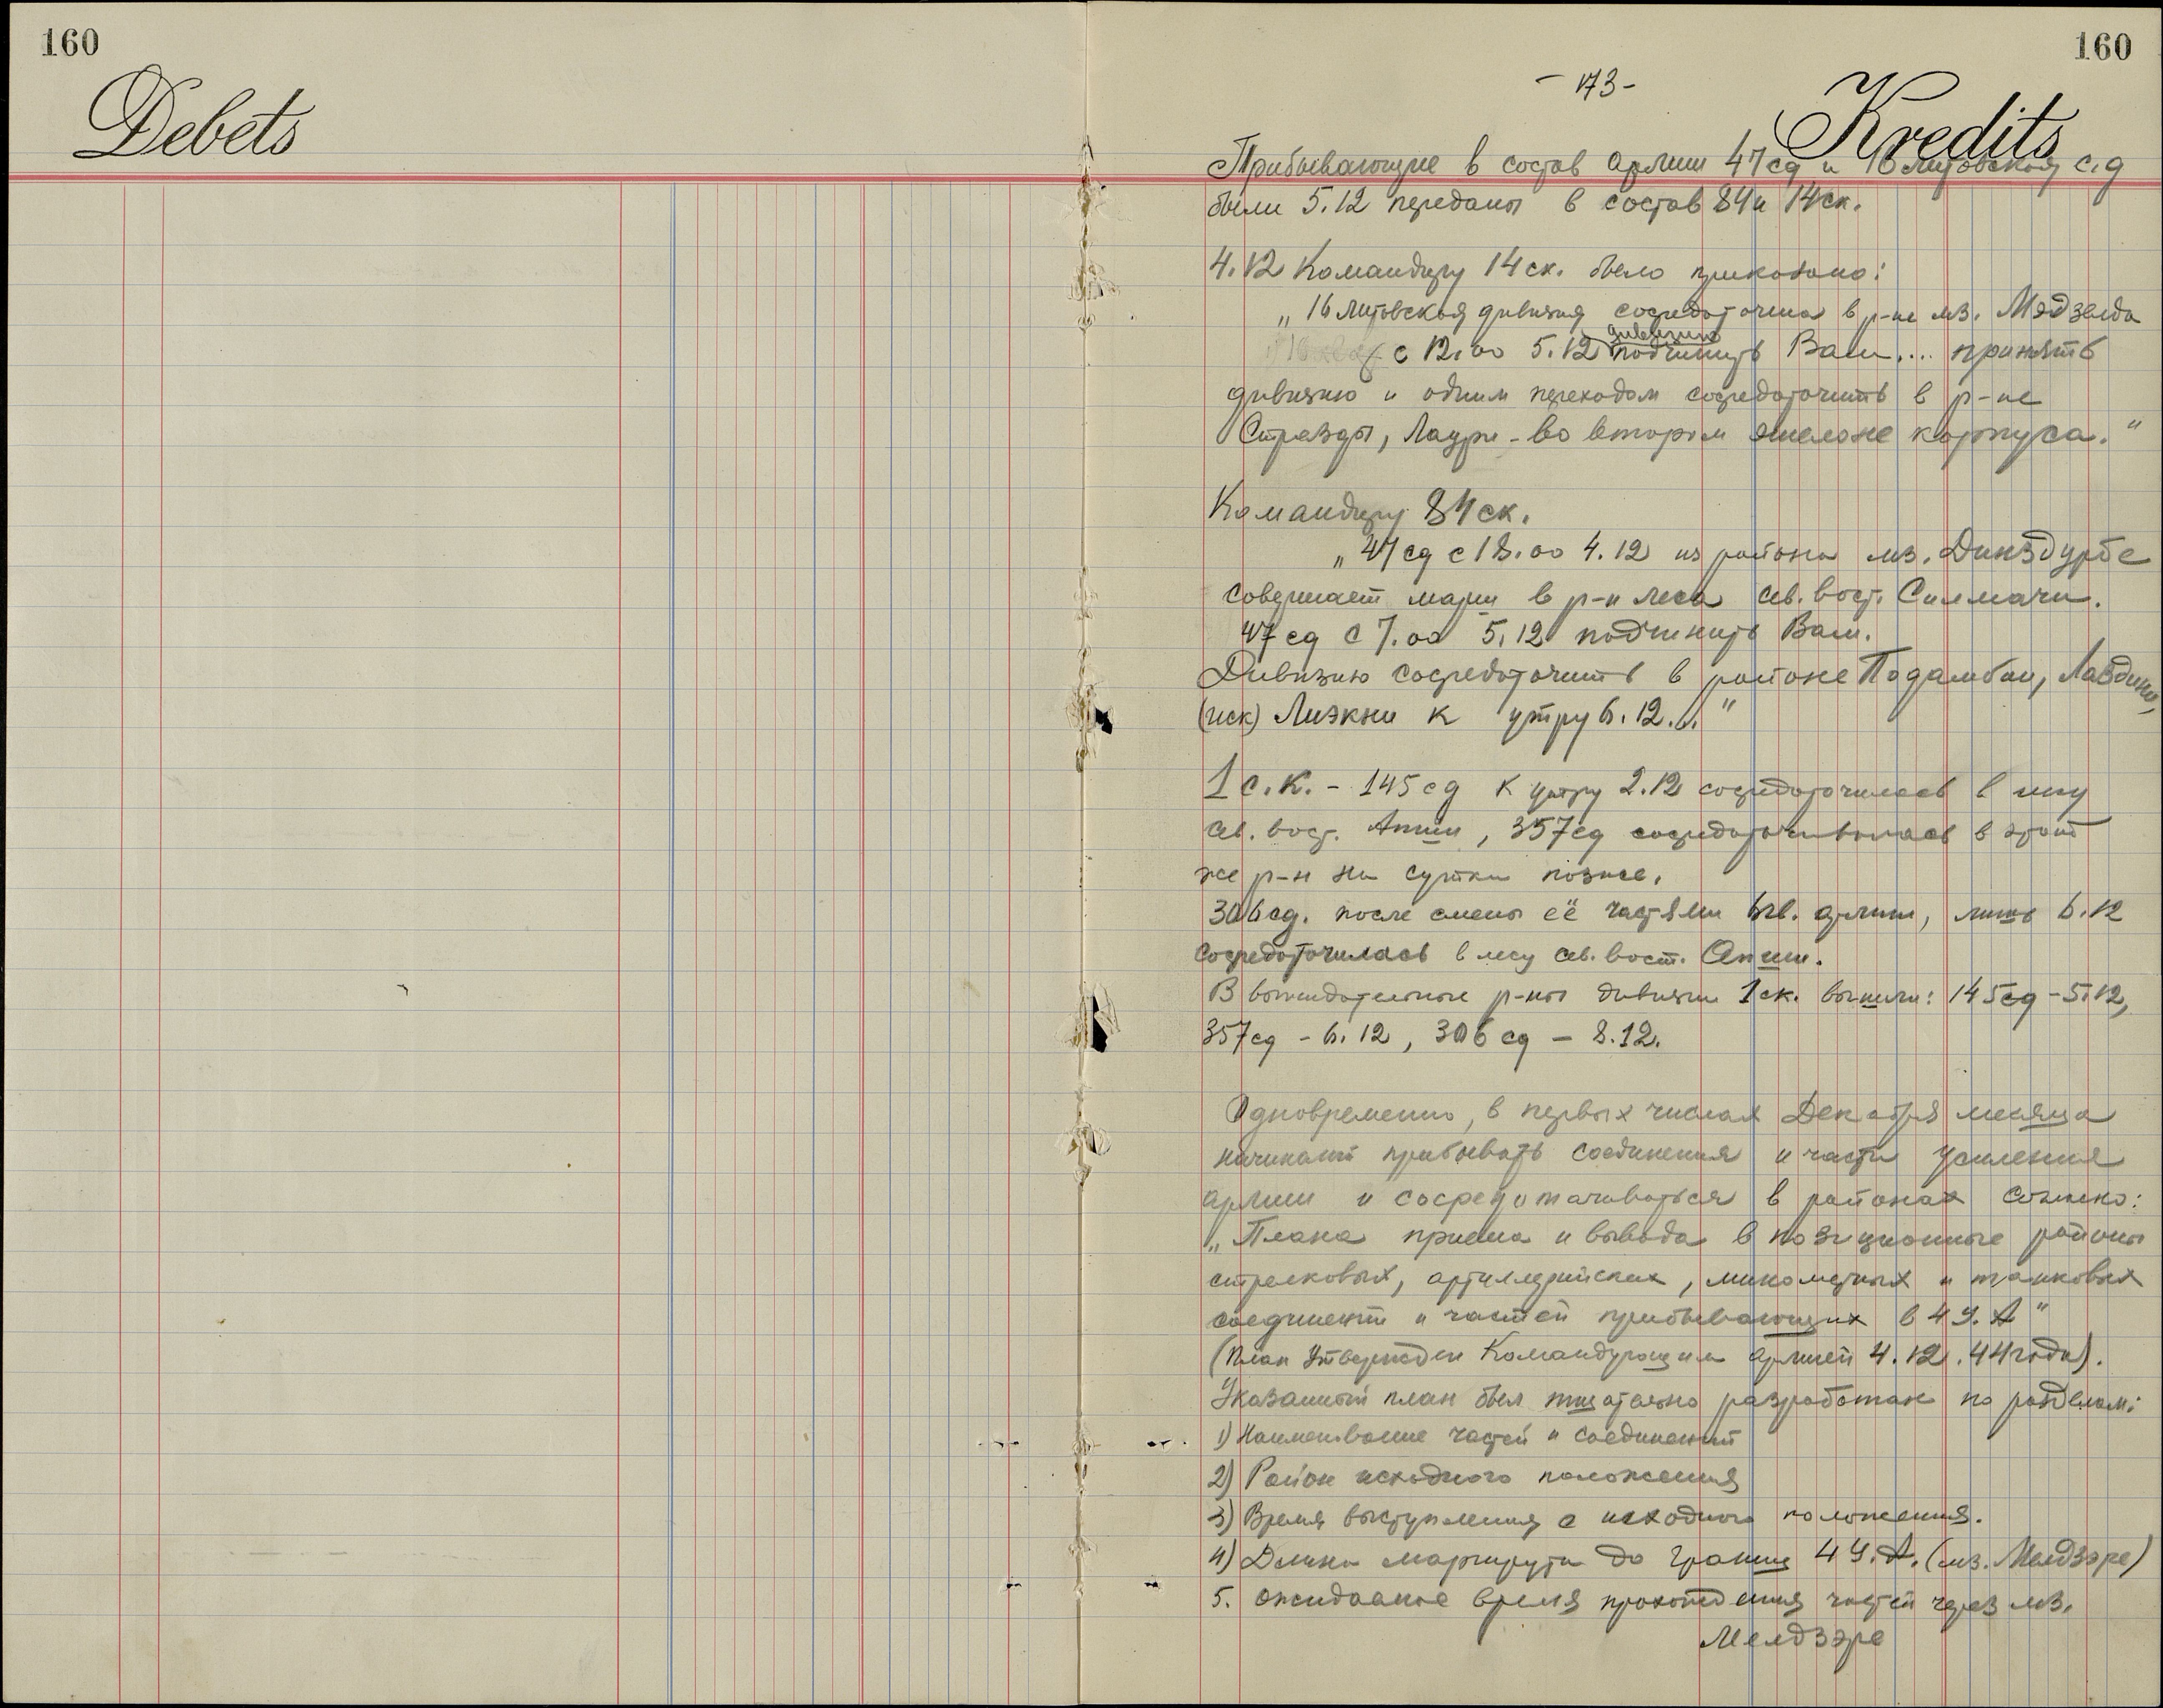 160
160
Debets
Kredits
- 173 -
Прибывающие в состав армии 47 сд и 16 литовская с.д
были 5.12 переданы в состав 84 и 14 ск.
4.12 Командиру 14 ск. было приказано:
„16 литовская дивизия сосредоточена в р-не мз. Мэдзелда
дивизию
с 12.00 5.12 подчинить Вам.... принять
дивизию и одним переходом сосредоточить в р-не
Стразды, Лаури - во втором эшелоне корпуса."
Командиру 84 ск.
„47 сд с 18.00 4.12 из района мз. Динздурбе
совершает марш в р-н леса сев. вост. Силмачи.
47 сд с 7.00 5.12 подчинить Вам.
Дивизию сосредоточить в районе Подамбаи, Лаздини,
(иск) Лиэкни к утру 6.12..."
1 с.к. - 145 сд к утру 2.12 сосредоточилась в лесу
сев. вост. Апши, 357 сд сосредотачивалась в этот
же р-н на сутки позже.
306 сд. после смены её частями 6 гв. армии, лишь 6.12
сосредоточилась в лесу сев. вост. Апши.
В выжидательные р-ны дивизии 1 ск. вышли: 145 сд - 5.12,
357 сд - 6.12, 306 сд - 8.12.
Одновременно, в первых числах Декабря месяца
начинают прибывать соединения и части усиления
армии и сосредотачиваться в районах согласно:
„Плана приема и вывода в позиционные районы
стрелковых, артиллерийских, минометных и танковых
соединений и частей прибывающих в 4 У.А"
(План Утвержден Командующим армией 4.12.44 года).
Указанный план был тщательно разработан по разделам:
1) Наименование частей и соединений
2) Район исходного положения
3) Время выступления с исходного положения.
4) Длина маршрута до границ 4 У.А. (мз. Мелдзэре)
5. Ожидаемое время прохождения частей через мз.
Мелдзэре